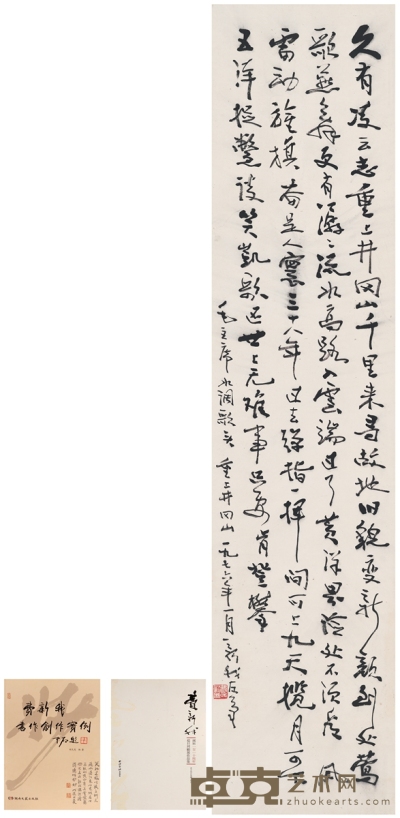 久有凌云志重上井冈山千里来寻故地旧貌变新颜到处莺
歌燕舞更有潺々流水高路入雲端过了黄洋界险处不须看风
雷动旌旗奋是人寰三十八年过去弹指一挥间可上九天揽月可下
五洋捉鳖谈笑凯歌还世上无难事只要肯登攀
毛主席水调歌头 重上井冈山 一九七六年一月 新我左笔
费新我
书作创作实例
费新我
卓克艺术网
www.zhuokearts.com